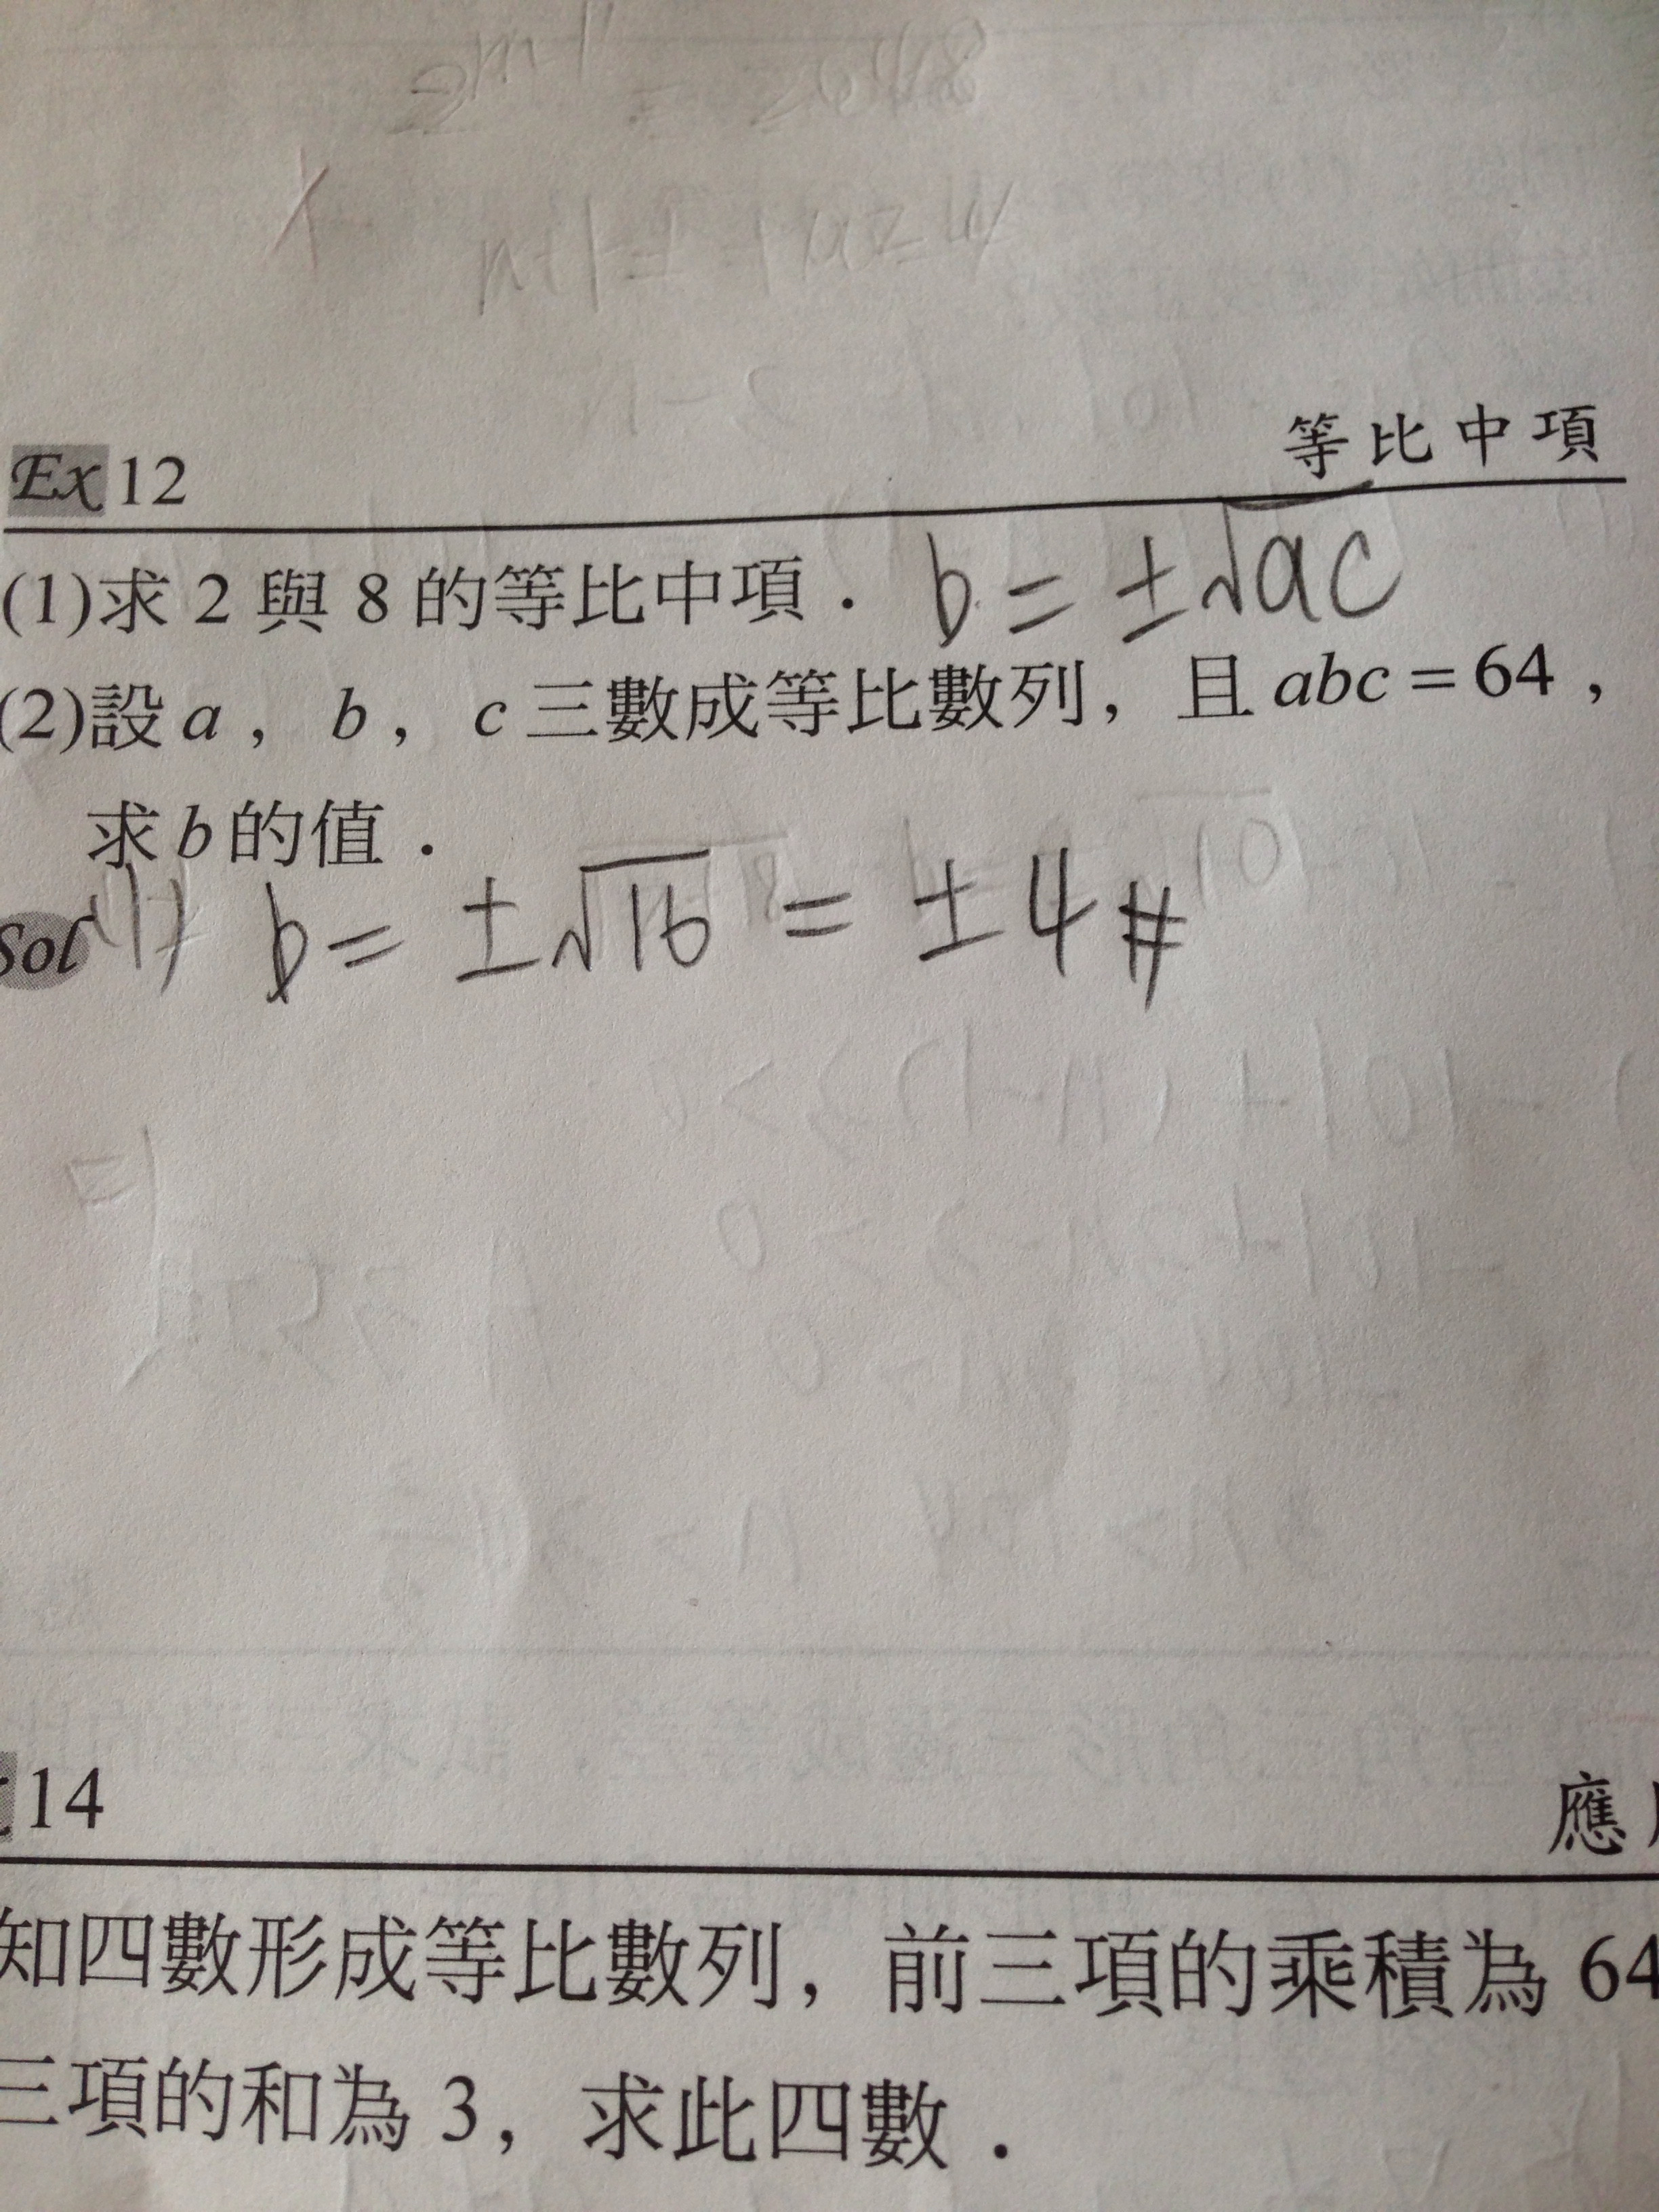 Ex 12 等比中項
(1)求 2 與 8 的等比中項． b = ±√ac
(2)設 a ， b ， c 三數成等比數列，且 abc = 64 ，
求 b 的值．
Sol (1) b = ±√16 = ±4 #
14 應
知四數形成等比數列，前三項的乘積為 64
三項的和為 3，求此四數．